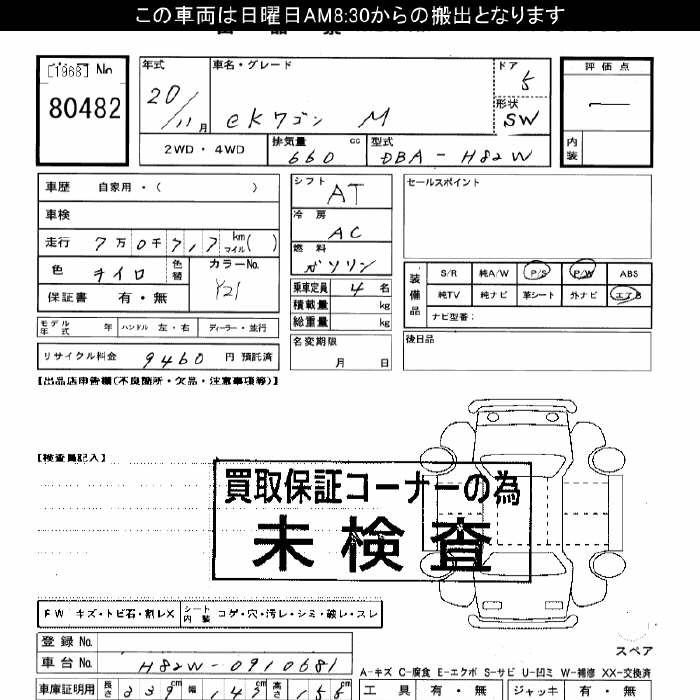 この車両は日曜日AM8:30からの搬出となります
[1968] No
80482
年式 車名・グレード ドア 評価点
20/11月 eKワゴン M 5
形状 SW
内装
2WD・4WD 排気量 660 cc 型式 DBA-H82W
車歴 自家用・( )
シフト AT
セールスポイント
車検
冷房 AC
走行 7万0千7,17 km マイル( )
燃料 ガソリン
色 キイロ 色替 カラーNo. Y21
装備品 S/R 純A/W P/S P/W ABS
保証書 有・無
乗車定員 4名
純TV 純ナビ 革シート 外ナビ エアB
積載量 kg
ナビ型番:
総重量 kg
モデル年式 年 ハンドル 左・右 ディーラー・並行
後日品
リサイクル料金 9460 円 預託済
名変期限 月 日
【出品店申告欄(不良箇所・欠品・注意事項等)】
【検査員記入】
買取保証コーナーの為
未検査
FW キズ・トビ石・割レX シート内装 コゲ・穴・汚レ・シミ・破レ・スレ
登録No.
スペア
車台No. H82W-0910681
A-キズ C-腐食 E-エクボ S-サビ U-凹ミ W-補修 XX-交換済
車庫証明用 長さ 339cm 幅 147cm 高さ 155cm
工具 有・無 ジャッキ 有・無